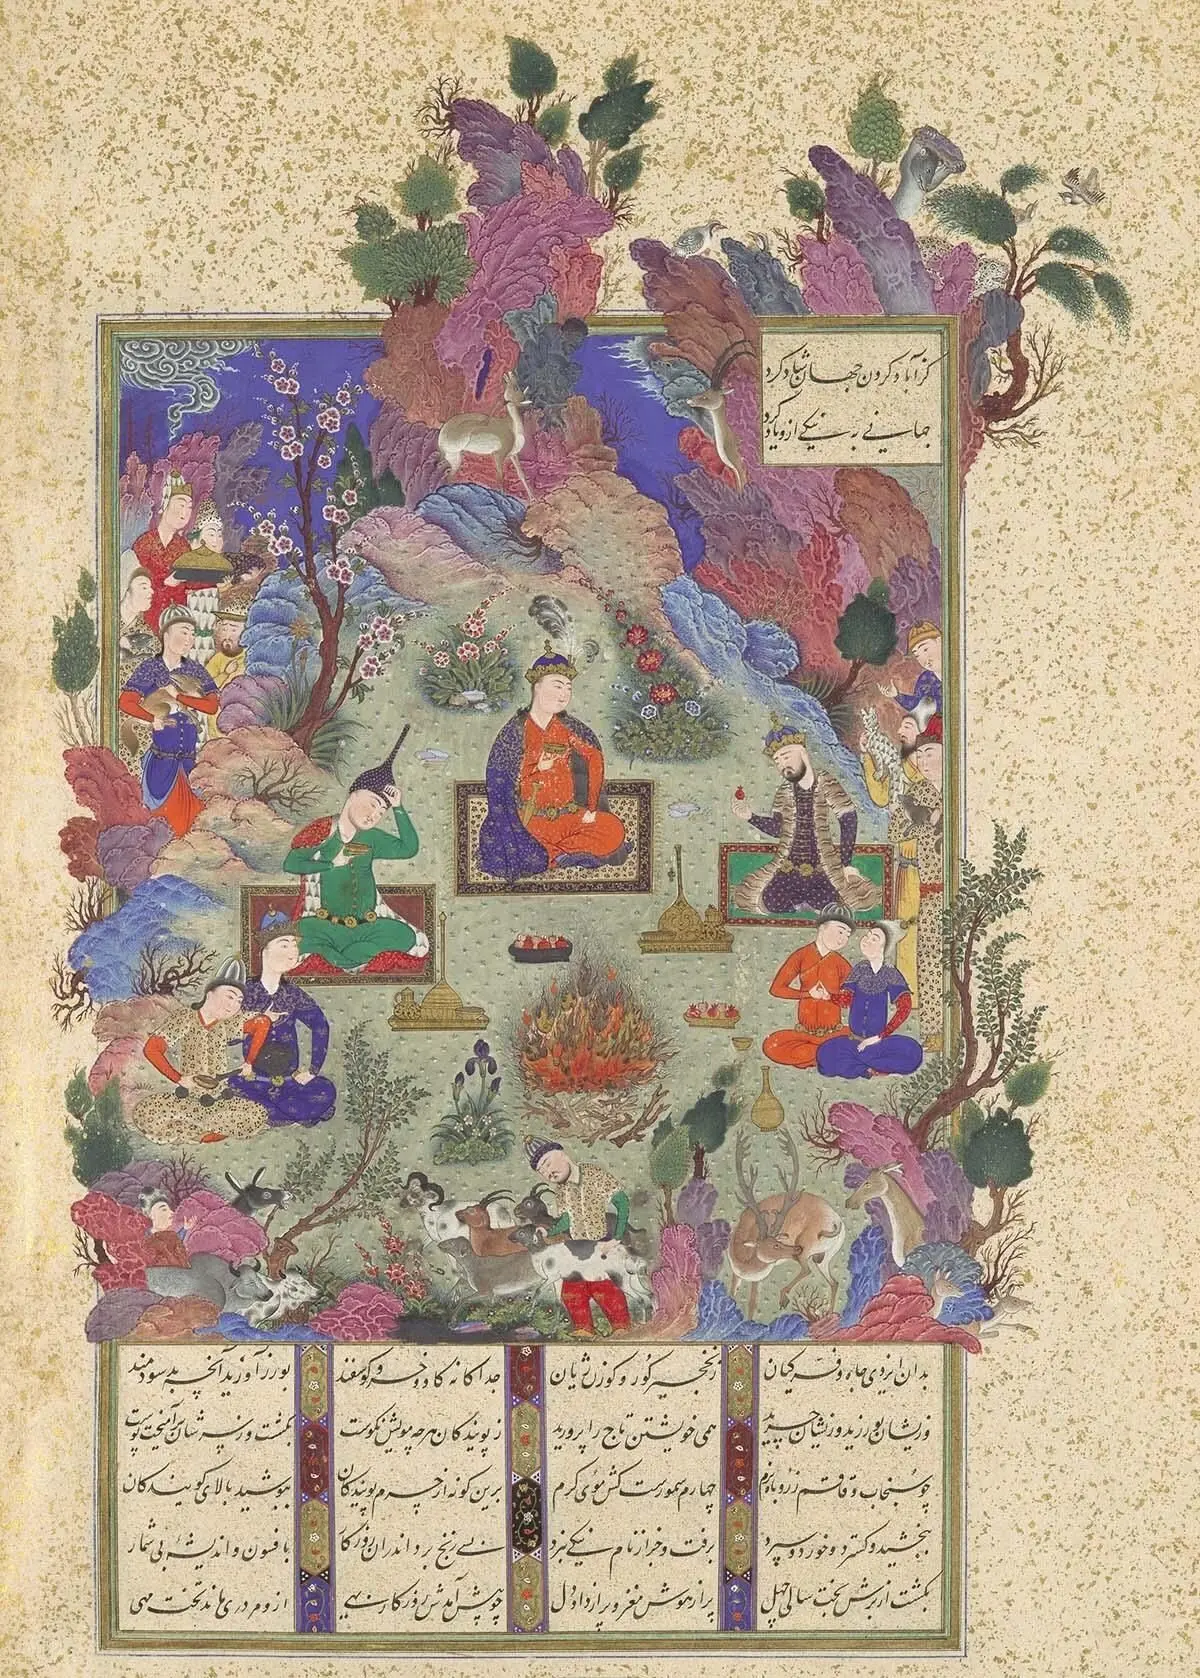 کز آباد کردن جهان شاد کرد
جهانی به نیکی ازو یاد کرد
بدان ایزدی جاه و فر کیان ز نخجیر کور و کوزن ژیان جدا کانه کاو و خر و کوسفند بورز آورید آنچه بد سودمند
وزیشان بورزید وزیشان چرید همی خویشتن تاج را پرورید ز پویندکان هرچه مویش نکوست بکشت و ز سرشان برآمیخت پوست
چو سنجاب و قاقم ز روباه نرم چهارم سمورست کش موی کرم برین کونه از چرم پویندکان بپوشید بالای کویندکان
ببخشید و کسترد و خورد و سپرد برفت و جز از نام نیکی نبرد بسی رنج برد اندران روزکار بافسون و اندیشهٔ بی شمار
بکشت از برش بخت سالی چهل پر از هوش مغز و پر از داد دل چو پیش آمدش روزکار بهی ازو مردری ماند تخت مهی